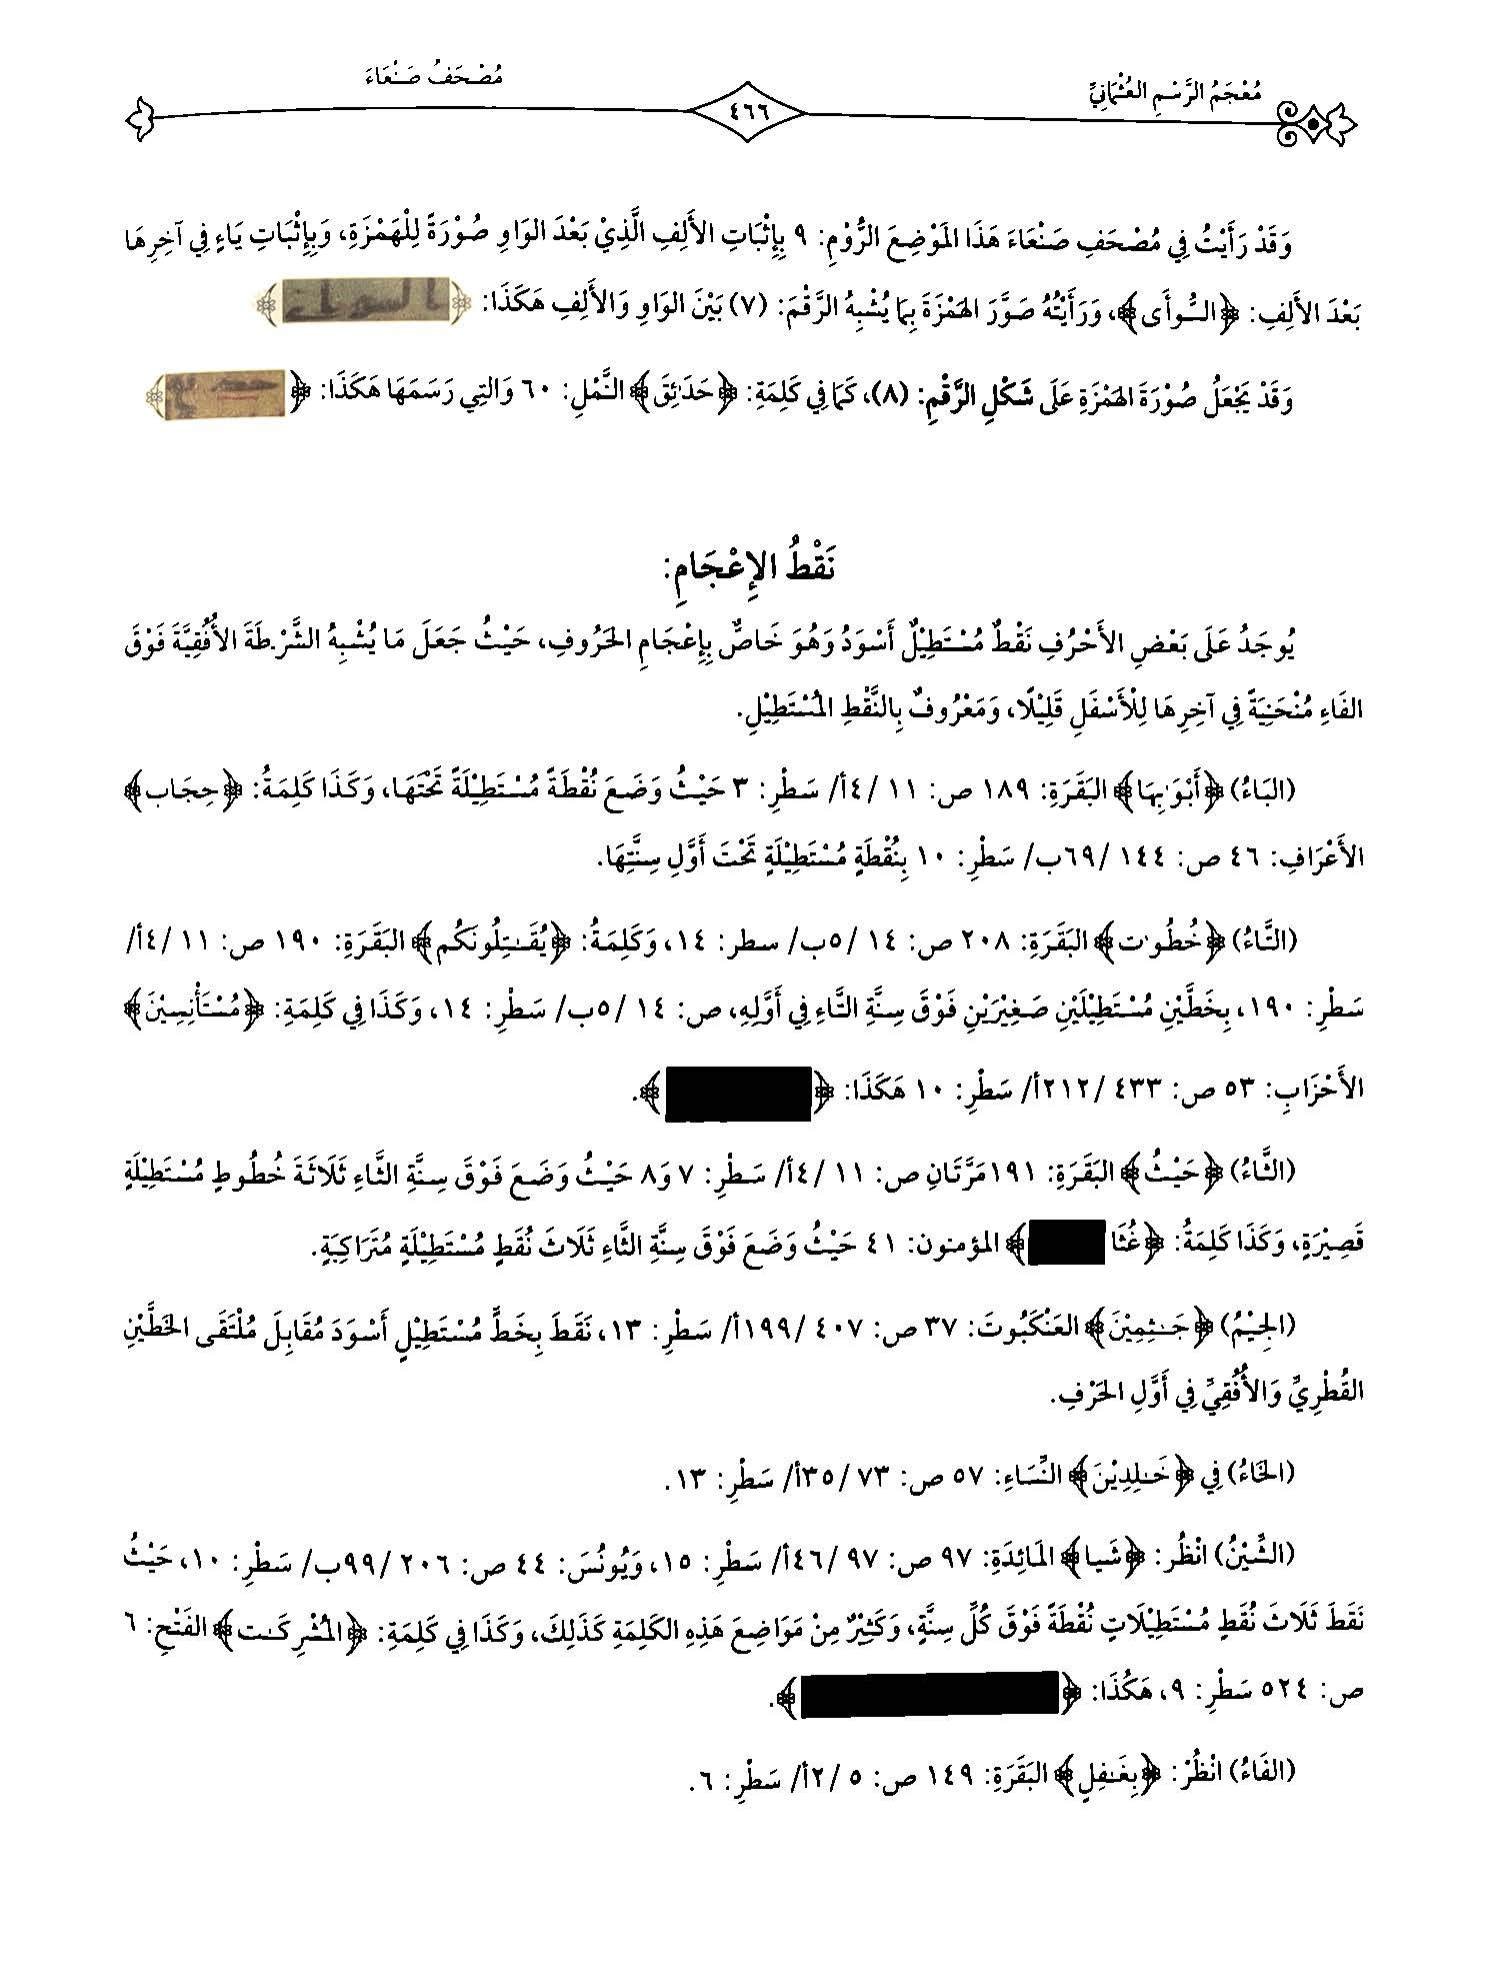 مُعْجَمُ الرَّسْمِ العُثْمَانِيِّ
٤٦٦
مُصْحَفُ صَنْعَاءَ
وَقَدْ رَأَيْتُ فِي مُصْحَفِ صَنْعَاءَ هَذَا المَوْضِعَ الرُّوْمِ: ٩ بِإِثْبَاتِ الأَلِفِ الَّذِيْ بَعْدَ الوَاوِ صُوْرَةً لِلْهَمْزَةِ، وَبِإِثْبَاتِ يَاءٍ فِي آخِرِهَا
بَعْدَ الأَلِفِ: ﴿السُّوأَى﴾، وَرَأَيْتُهُ صَوَّرَ الهَمْزَةَ بِمَا يُشْبِهُ الرَّقْمَ: (٧) بَيْنَ الوَاوِ وَالأَلِفِ هَكَذَا: ﴿ ﴾
وَقَدْ يَجْعَلُ صُوْرَةَ الهَمْزَةِ عَلَى شَكْلِ الرَّقْمِ: (٨)، كَمَا فِي كَلِمَةِ: ﴿حَدَائِقَ﴾ النَّمْلِ: ٦٠ وَالتِي رَسَمَهَا هَكَذَا: ﴿ ﴾
نَقْطُ الإِعْجَامِ:
يُوجَدُ عَلَى بَعْضِ الأَحْرُفِ نَقْطٌ مُسْتَطِيْلٌ أَسْوَدُ وَهُوَ خَاصٌّ بِإِعْجَامِ الحَرُوفِ، حَيْثُ جَعَلَ مَا يُشْبِهُ الشَّرْطَةَ الأُفُقِيَّةَ فَوْقَ
الفَاءِ مُنْحَنِيَةً فِي آخِرِهَا لِلْأَسْفَلِ قَلِيْلًا، وَمَعْرُوفٌ بِالنَّقْطِ المُسْتَطِيْلِ.
(البَاءُ) ﴿أَبْوَٰبِهَا﴾ البَقَرَةِ: ١٨٩ ص: ١١ /٤أ/ سَطْرِ: ٣ حَيْثُ وَضَعَ نُقْطَةً مُسْتَطِيْلَةً تَحْتَهَا، وَكَذَا كَلِمَةُ: ﴿حِجَاب﴾
الأَعْرَافِ: ٤٦ ص: ١٤٤ /٦٩ب/ سَطْرِ: ١٠ بِنُقْطَةٍ مُسْتَطِيْلَةٍ تَحْتَ أَوَّلِ سِنَّتِهَا.
(التَّاءُ) ﴿خُطُوَٰت﴾ البَقَرَةِ: ٢٠٨ ص: ١٤ /٥ب/ سطر: ١٤، وَكَلِمَةُ: ﴿يُقَٰتِلُونَكُم﴾ البَقَرَةِ: ١٩٠ ص: ١١ /٤أ/
سَطْرِ: ١٩٠، بِخَطَّيْنِ مُسْتَطِيْلَيْنِ صَغِيْرَيْنِ فَوْقَ سِنَّةِ التَّاءِ فِي أَوَّلِهِ، ص: ١٤ /٥ب/ سَطْرِ: ١٤، وَكَذَا فِي كَلِمَةِ: ﴿مُسْتَأْنِسِيْنَ﴾
الأَحْزَابِ: ٥٣ ص: ٤٣٣ /٢١٢أ/ سَطْرِ: ١٠ هَكَذَا: ﴿ ﴾.
(الثَّاءُ) ﴿حَيْثُ﴾ البَقَرَةِ: ١٩١ مَرَّتَانِ ص: ١١ /٤أ/ سَطْرِ: ٧ وَ٨ حَيْثُ وَضَعَ فَوْقَ سِنَّةِ الثَّاءِ ثَلَاثَةَ خُطُوطٍ مُسْتَطِيْلَةٍ
قَصِيْرَةٍ، وَكَذَا كَلِمَةُ: ﴿غُثَا ﴾ المؤمنون: ٤١ حَيْثُ وَضَعَ فَوْقَ سِنَّةِ الثَّاءِ ثَلَاثَ نُقَطٍ مُسْتَطِيْلَةٍ مُتَرَاكِبَةٍ.
(الجِيْمُ) ﴿جَٰثِمِيْنَ﴾ العَنْكَبُوتَ: ٣٧ ص: ٤٠٧ /١٩٩أ/ سَطْرِ: ١٣، نَقَطَ بِخَطٍّ مُسْتَطِيْلٍ أَسْوَدَ مُقَابِلَ مُلْتَقَى الخَطَّيْنِ
القُطْرِيِّ وَالأُفُقِيِّ فِي أَوَّلِ الحَرْفِ.
(الخَاءُ) فِي ﴿خَٰلِدِيْنَ﴾ النِّسَاءِ: ٥٧ ص: ٧٣ /٣٥أ/ سَطْرِ: ١٣.
(الشِّيْنُ) انْظُر: ﴿شَيا﴾ المَائِدَةِ: ٩٧ ص: ٩٧ /٤٦أ/ سَطْرِ: ١٥، وَيُونُسَ: ٤٤ ص: ٢٠٦ /٩٩ب/ سَطْرِ: ١٠، حَيْثُ
نَقَطَ ثَلَاثَ نُقَطٍ مُسْتَطِيْلَاتٍ نُقْطَةً فَوْقَ كُلِّ سِنَّةٍ، وَكَثِيْرٌ مِنْ مَوَاضِعَ هَذِهِ الكَلِمَةِ كَذَلِكَ، وَكَذَا فِي كَلِمَةِ: ﴿المُشْرِكَٰت﴾ الفَتْحِ: ٦
ص: ٥٢٤ سَطْرِ: ٩، هَكُذَا: ﴿ ﴾.
(الفَاءُ) انْظُرْ: ﴿بِغَٰفِلٍ﴾ البَقَرَةِ: ١٤٩ ص: ٥ /٢أ/ سَطْرِ: ٦.